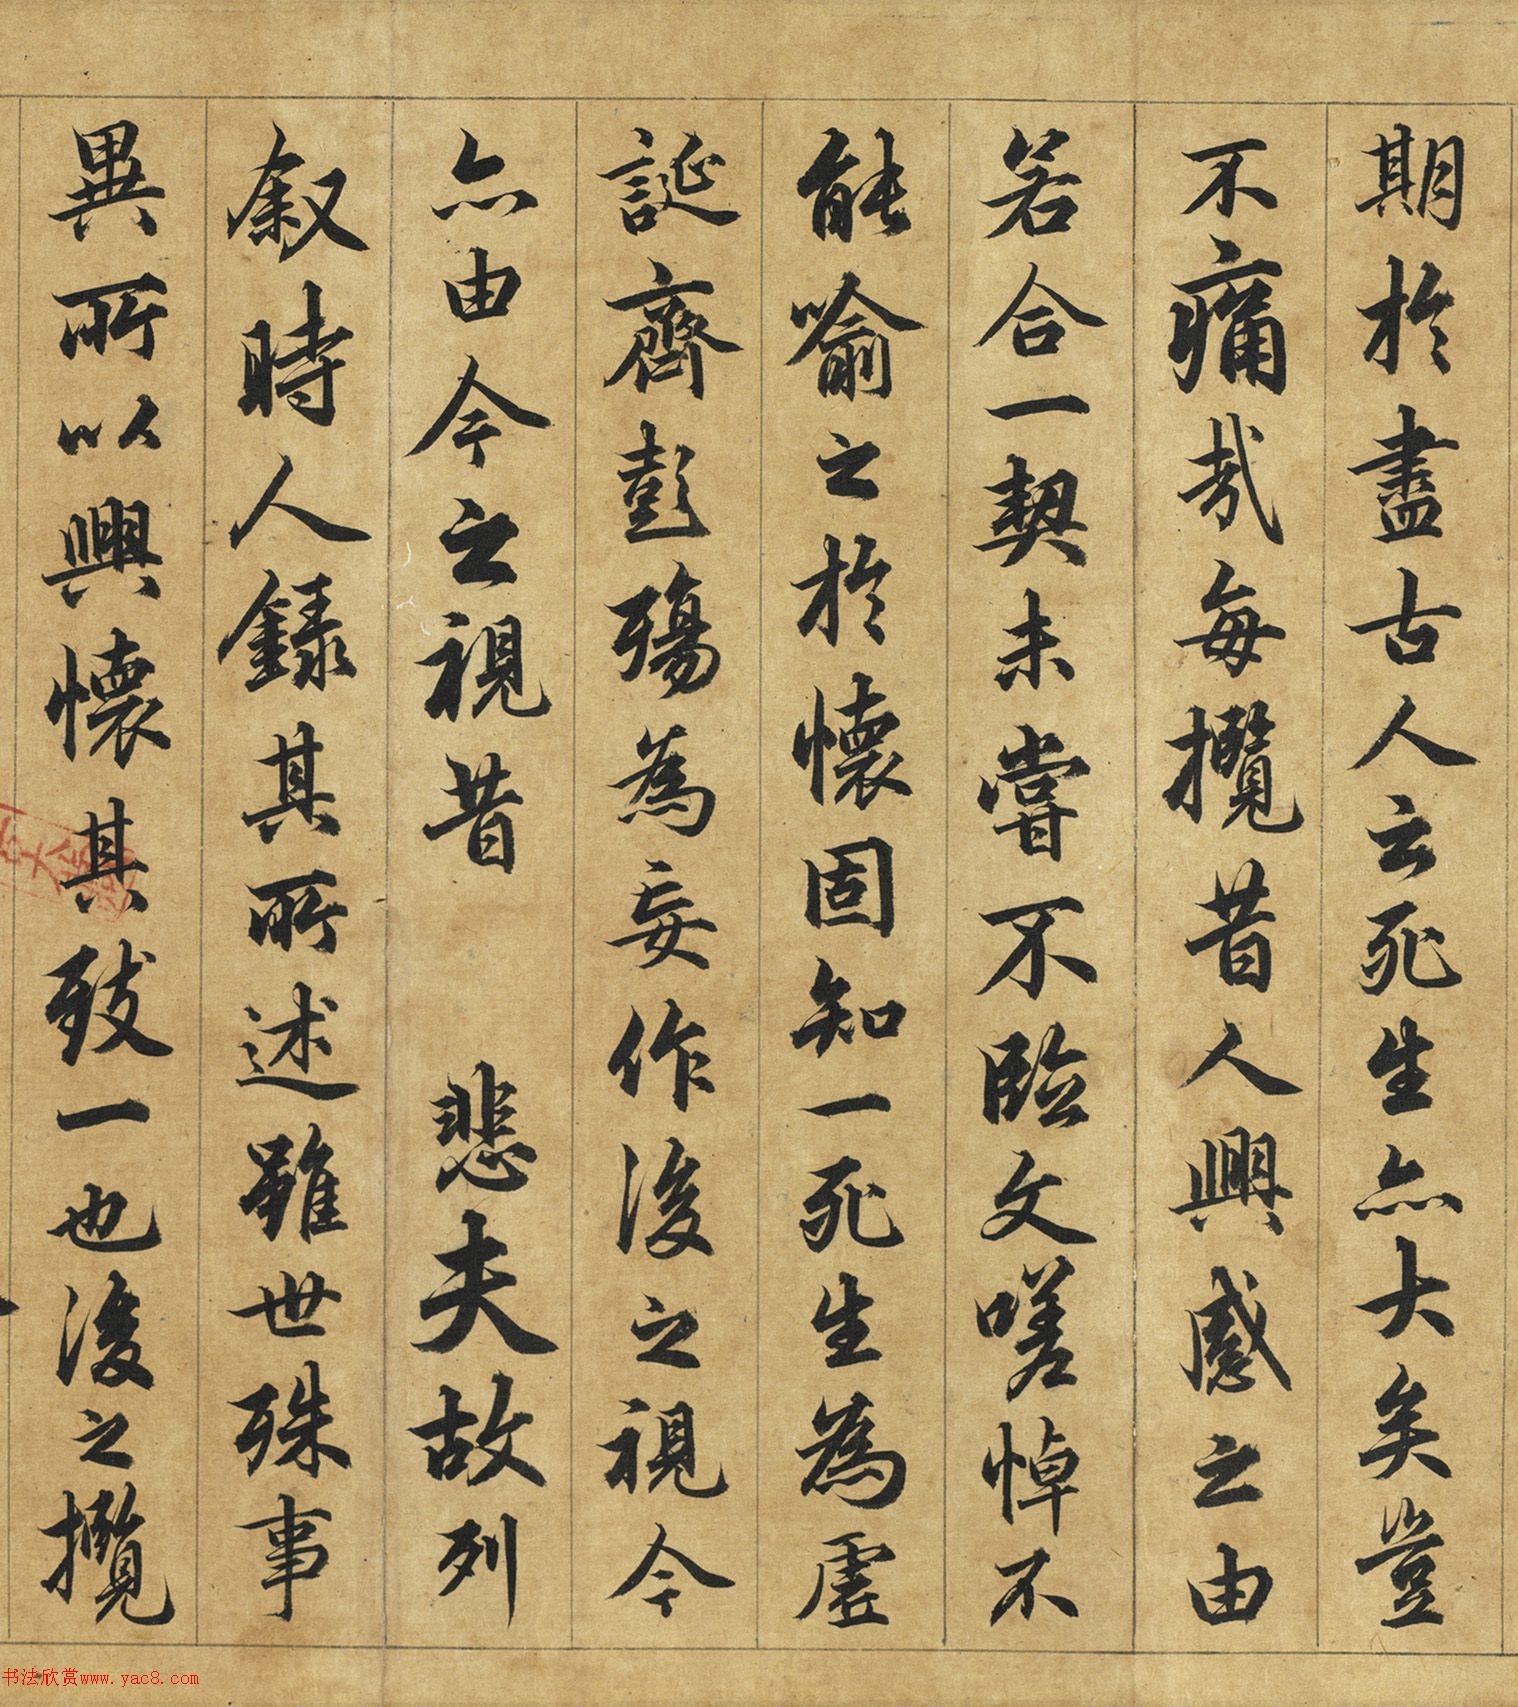 期於盡古人云死生亦大矣豈
不痛哉每攬昔人興感之由
若合一契未嘗不臨文嗟悼不
能喻之於懷固知一死生為虛
誕齊彭殤為妄作後之視今
亦由今之視昔 悲夫故列
叙時人錄其所述雖世殊事
異所以興懷其致一也後之攬
书法欣赏www.yac8.com